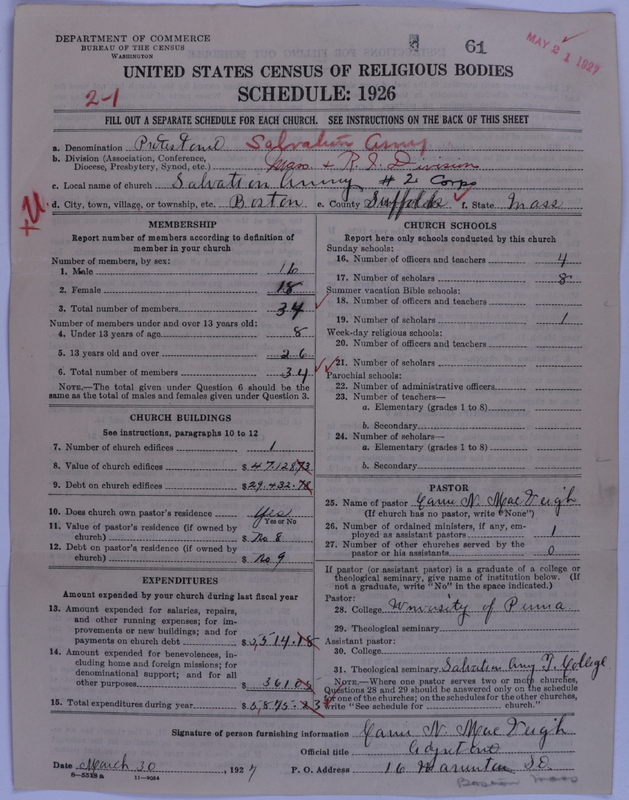 DEPARTMENT OF COMMERCE
BUREAU OF THE CENSUS
WASHINGTON
61
MAY 21 1927
UNITED STATES CENSUS OF RELIGIOUS BODIES
2-1
SCHEDULE: 1926
FILL OUT A SEPARATE SCHEDULE FOR EACH CHURCH. SEE INSTRUCTIONS ON THE BACK OF THIS SHEET
a. Denomination Salvation Army
b. Division (Association, Conference, Diocese, Presbytery, Synod, etc.) Mass + R.I. Division
c. Local name of church Salvation Army #2 Corps
d. City, town, village, or township, etc. Boston e. County Suffolk f. State Mass
MEMBERSHIP
Report number of members according to definition of member in your church
Number of members, by sex:
1. Male 16
2. Female 18
3. Total number of members 34
Number of members under and over 13 years old:
4. Under 13 years of age 8
5. 13 years old and over 26
6. Total number of members 34
NOTE.—The total given under Question 6 should be the same as the total of males and females given under Question 3.
CHURCH BUILDINGS
See instructions, paragraphs 10 to 12
7. Number of church edifices 1
8. Value of church edifices $ 47.128.73
9. Debt on church edifices $ 29.432.78
10. Does church own pastor's residence Yes
Yes or No
11. Value of pastor's residence (if owned by church) $ No 8
12. Debt on pastor's residence (if owned by church) $ No 9
EXPENDITURES
Amount expended by your church during last fiscal year
13. Amount expended for salaries, repairs, and other running expenses; for improvements or new buildings; and for payments on church debt $ 5,514.18
14. Amount expended for benevolences, including home and foreign missions; for denominational support; and for all other purposes $ 361.05
15. Total expenditures during year $ 5,875.23
CHURCH SCHOOLS
Report here only schools conducted by this church
Sunday schools:
16. Number of officers and teachers 4
17. Number of scholars 8
Summer vacation Bible schools:
18. Number of officers and teachers
19. Number of scholars 1
Week-day religious schools:
20. Number of officers and teachers
21. Number of scholars
Parochial schools:
22. Number of administrative officers
23. Number of teachers—
a. Elementary (grades 1 to 8)
b. Secondary
24. Number of scholars—
a. Elementary (grades 1 to 8)
b. Secondary
PASTOR
25. Name of pastor N. MacVeigh
(If church has no pastor, write "None")
26. Number of ordained ministers, if any, employed as assistant pastors 1
27. Number of other churches served by the pastor or his assistants 0
If pastor (or assistant pastor) is a graduate of a college or theological seminary, give name of institution below. (If not a graduate, write "No" in the space indicated.)
Pastor:
28. College University of Penna
29. Theological seminary
Assistant pastor:
30. College
31. Theological seminary Salvation Army T. College
NOTE.—Where one pastor serves two or more churches, Questions 28 and 29 should be answered only on the schedule for one of the churches; on the schedules for the other churches, write "See schedule for church."
Signature of person furnishing information N. MacVeigh
Official title Adjutant
Date March 30, 1927 P. O. Address 16
Boston Mass
8—5518 a 11—9064